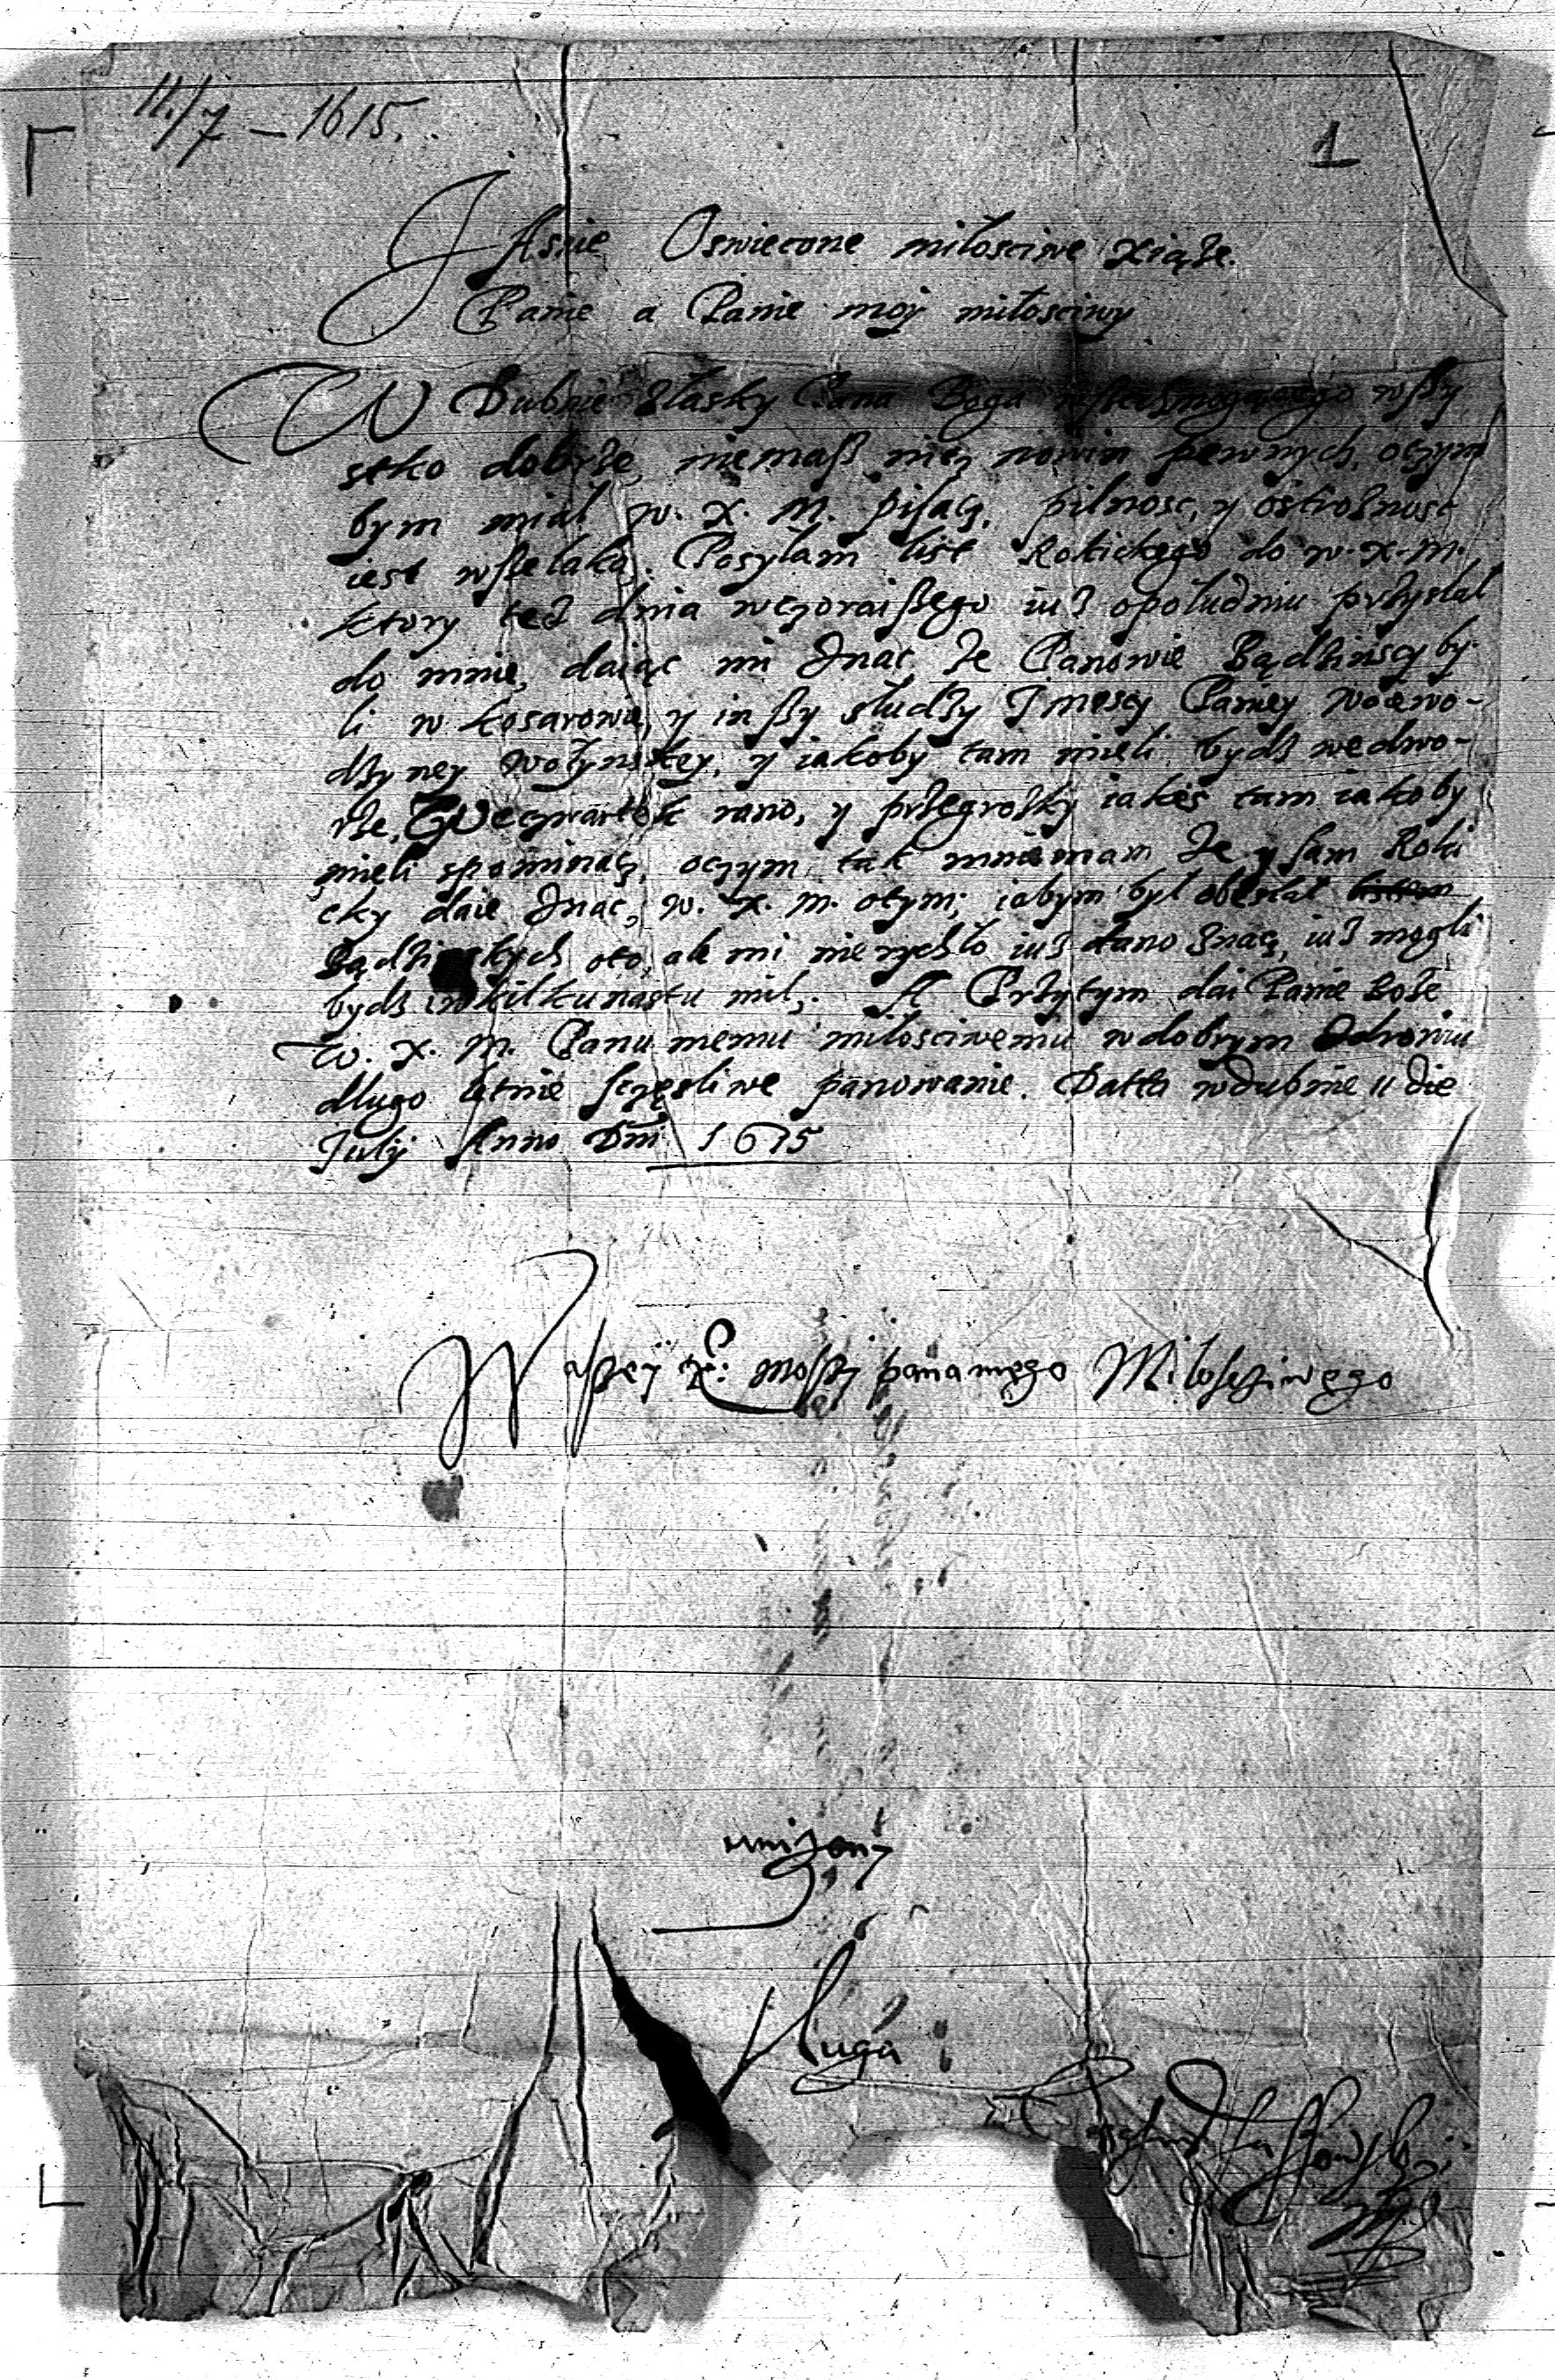 11./7 – 1615.
1
JAsnie Oswiecone miłosciwe Xiąże
Panie a Panie moy miłosciwy
W Dubnie z łasky Pana Boga wszechmogącego wszy
stko dobrze, niemasz nicz nowin pewnych, oczym
bym miał w. x. m. pisacz, pilnosc, y ostrosnosc
iest wszelaka. Posyłam list Rokickego do w. x. m.
ktory też dnia wczoraiszego iuż opołudniu przysłał
do mnie, daiąc mi znac że Panowie Bądzinscy by-
li w kosarowie, y inszy słudzy Jmescy Paniey woiewo-
dzyney wołynskey, y iakoby tam mieli bydz wedwo-
rze, weczwartek rano, y przegrosky iakes tam iakoby
mieli spominacz, oczym tak mniemam że y sam Roki
cky daie znac, w. x. m. otym, iabym był obesłał
Bądzinskych oto, ale mi nierychło iuż dano znacz, iuż mogli
bydz wkilkunastu mil. A Przytym dai Panie Boże
w. x. m. Panu memu miłosciwemu wdobrym zdrowiu
długo letnie sczęsliwe panowanie. Datta wdubnie 11 die
July Anno Dni 1615
Waszey X. mosczi pana mego Miłosczi wego
unizony
sluga